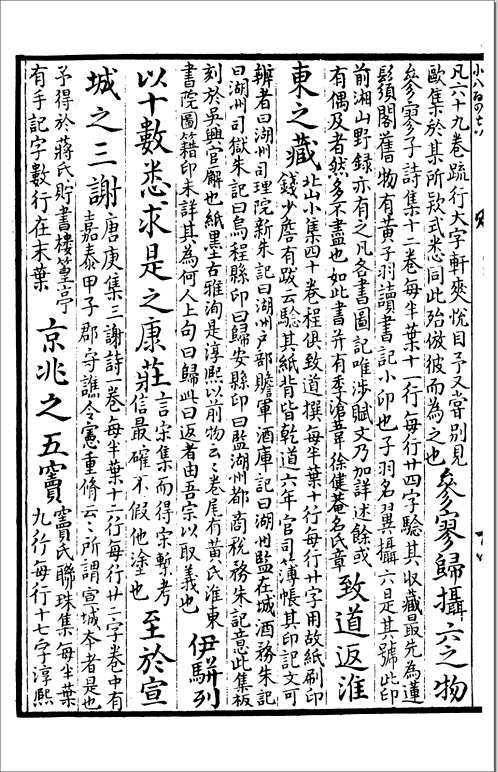 凡六十九卷疏行大字軒爽悅目予又嘗別見
歐集於某所欵式悉同此殆倣彼而為之也
參寥歸攝六之物
參寥子詩集十二卷每半葉十一行每行廿四字驗其收藏最先為蓮
鬚閣舊物有黃子羽讀書記小印也子羽名翼攝六是其號此印
前湘山野錄亦有之凡各書圖記唯涉賦文乃加詳述餘或
有偶及者然多不盡也如此書并有季滄葦徐健菴名氏章
致道返淮
東之藏
北山小集四十卷程俱致道撰每半葉十行每行廿字用故紙刷印
錢少詹有跋云驗其紙背皆乾道六年官司簿帳其印記文可
辨者曰湖州司理院新朱記曰湖州戶部贍軍酒庫記曰湖州監在城酒務朱記
曰湖州司獄朱記曰烏程縣印曰歸安縣印曰監湖州都商稅務朱記意此集板
刻於吳興官廨也紙墨古雅洵是淳熙以前物云云卷尾有黃氏淮東
書院圖籍印未詳其為何人上句曰歸此曰返者由吾宗以取義也
伊駢列
以十數悉求是之康莊
言宗集而得宋槧考
信最確不假他塗也
至於宣
城之三謝
唐庚集三謝詩一卷每半葉十二行每行廿二字卷中有
嘉泰甲子郡守譙令憲重脩云云所謂宣城本者是也
予得於蔣氏貯書樓篁亭
有手記字數行在末葉
京兆之五竇
竇氏聯珠集每半葉
九行每行十七字淳熙